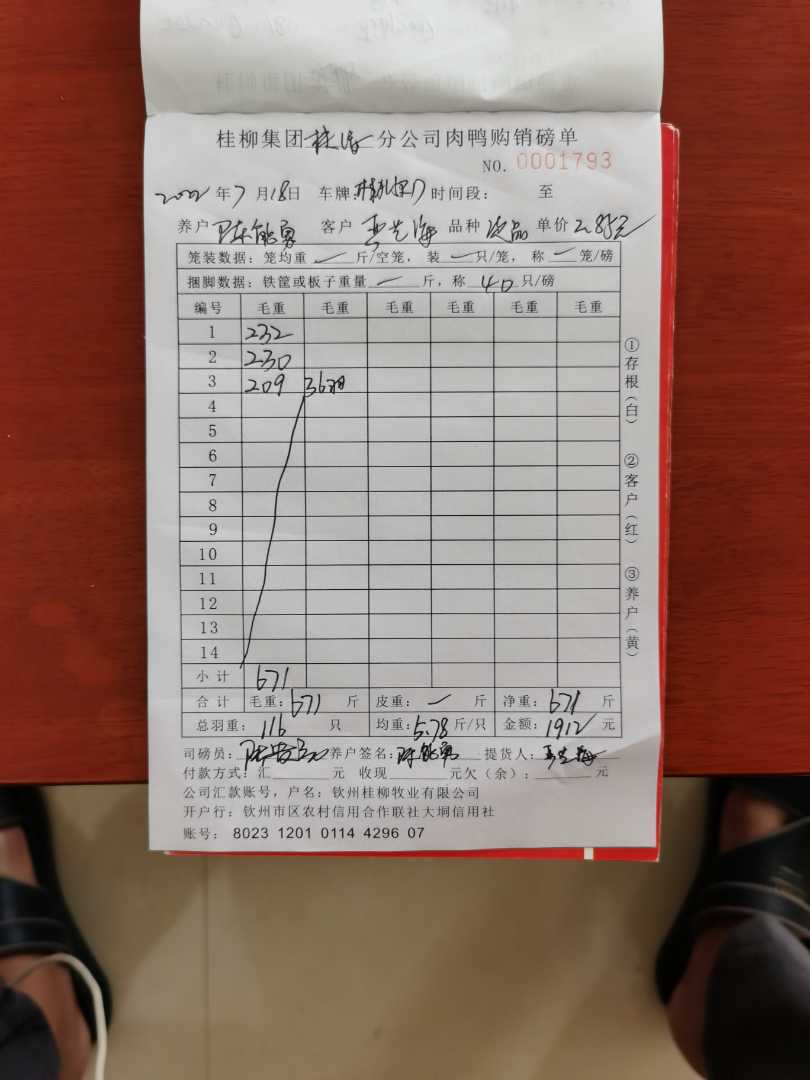 桂柳集团桂海分公司肉鸭购销磅单
NO. 0001793
2022年7月18日 车牌 时间段: 至
养户 陈能勇 客户 品种 次品 单价 2.85元
笼装数据: 笼均重 一 斤/空笼, 装 一 只/笼, 称 一 笼/磅
捆脚数据: 铁筐或板子重量 一 斤, 称 40 只/磅
编号 毛重 毛重 毛重 毛重 毛重 毛重
1 232
2 230
3 209 36羽
4
5
6
7
8
9
10
11
12
13
14
小计 671
合计 毛重: 671 斤 皮重: 一 斤 净重: 671 斤
总羽重: 116 只 均重: 5.78 斤/只 金额: 1912 元
司磅员: 养户签名: 陈能勇 提货人:
付款方式: 汇 元 收现 元欠(余): 元
公司汇款账号, 户名: 钦州桂柳牧业有限公司
开户行: 钦州市区农村信用合作联社大垌信用社
账号: 8023 1201 0114 4296 07
①存根(白)
②客户(红)
③养户(黄)